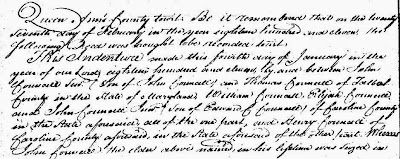 Queen Ann's County to wit. Be it remembered that on the twenty
seventh day of February in the year eighteen hundred and eleven, the
following Deed was brought to be recorded to wit.
This Indenture made this fourth day of January in the
year of our Lord eighteen hundred and eleven by and between John
Son of John and Thomas of Talbot
County in the State of Maryland William Elijah
and John Son of of Caroline County
in the State aforesaid, all of the one part, and Henry of
Caroline County aforesaid, in the State aforesaid of the other part. Whereas
John the elder above named in his lifetime was seized in